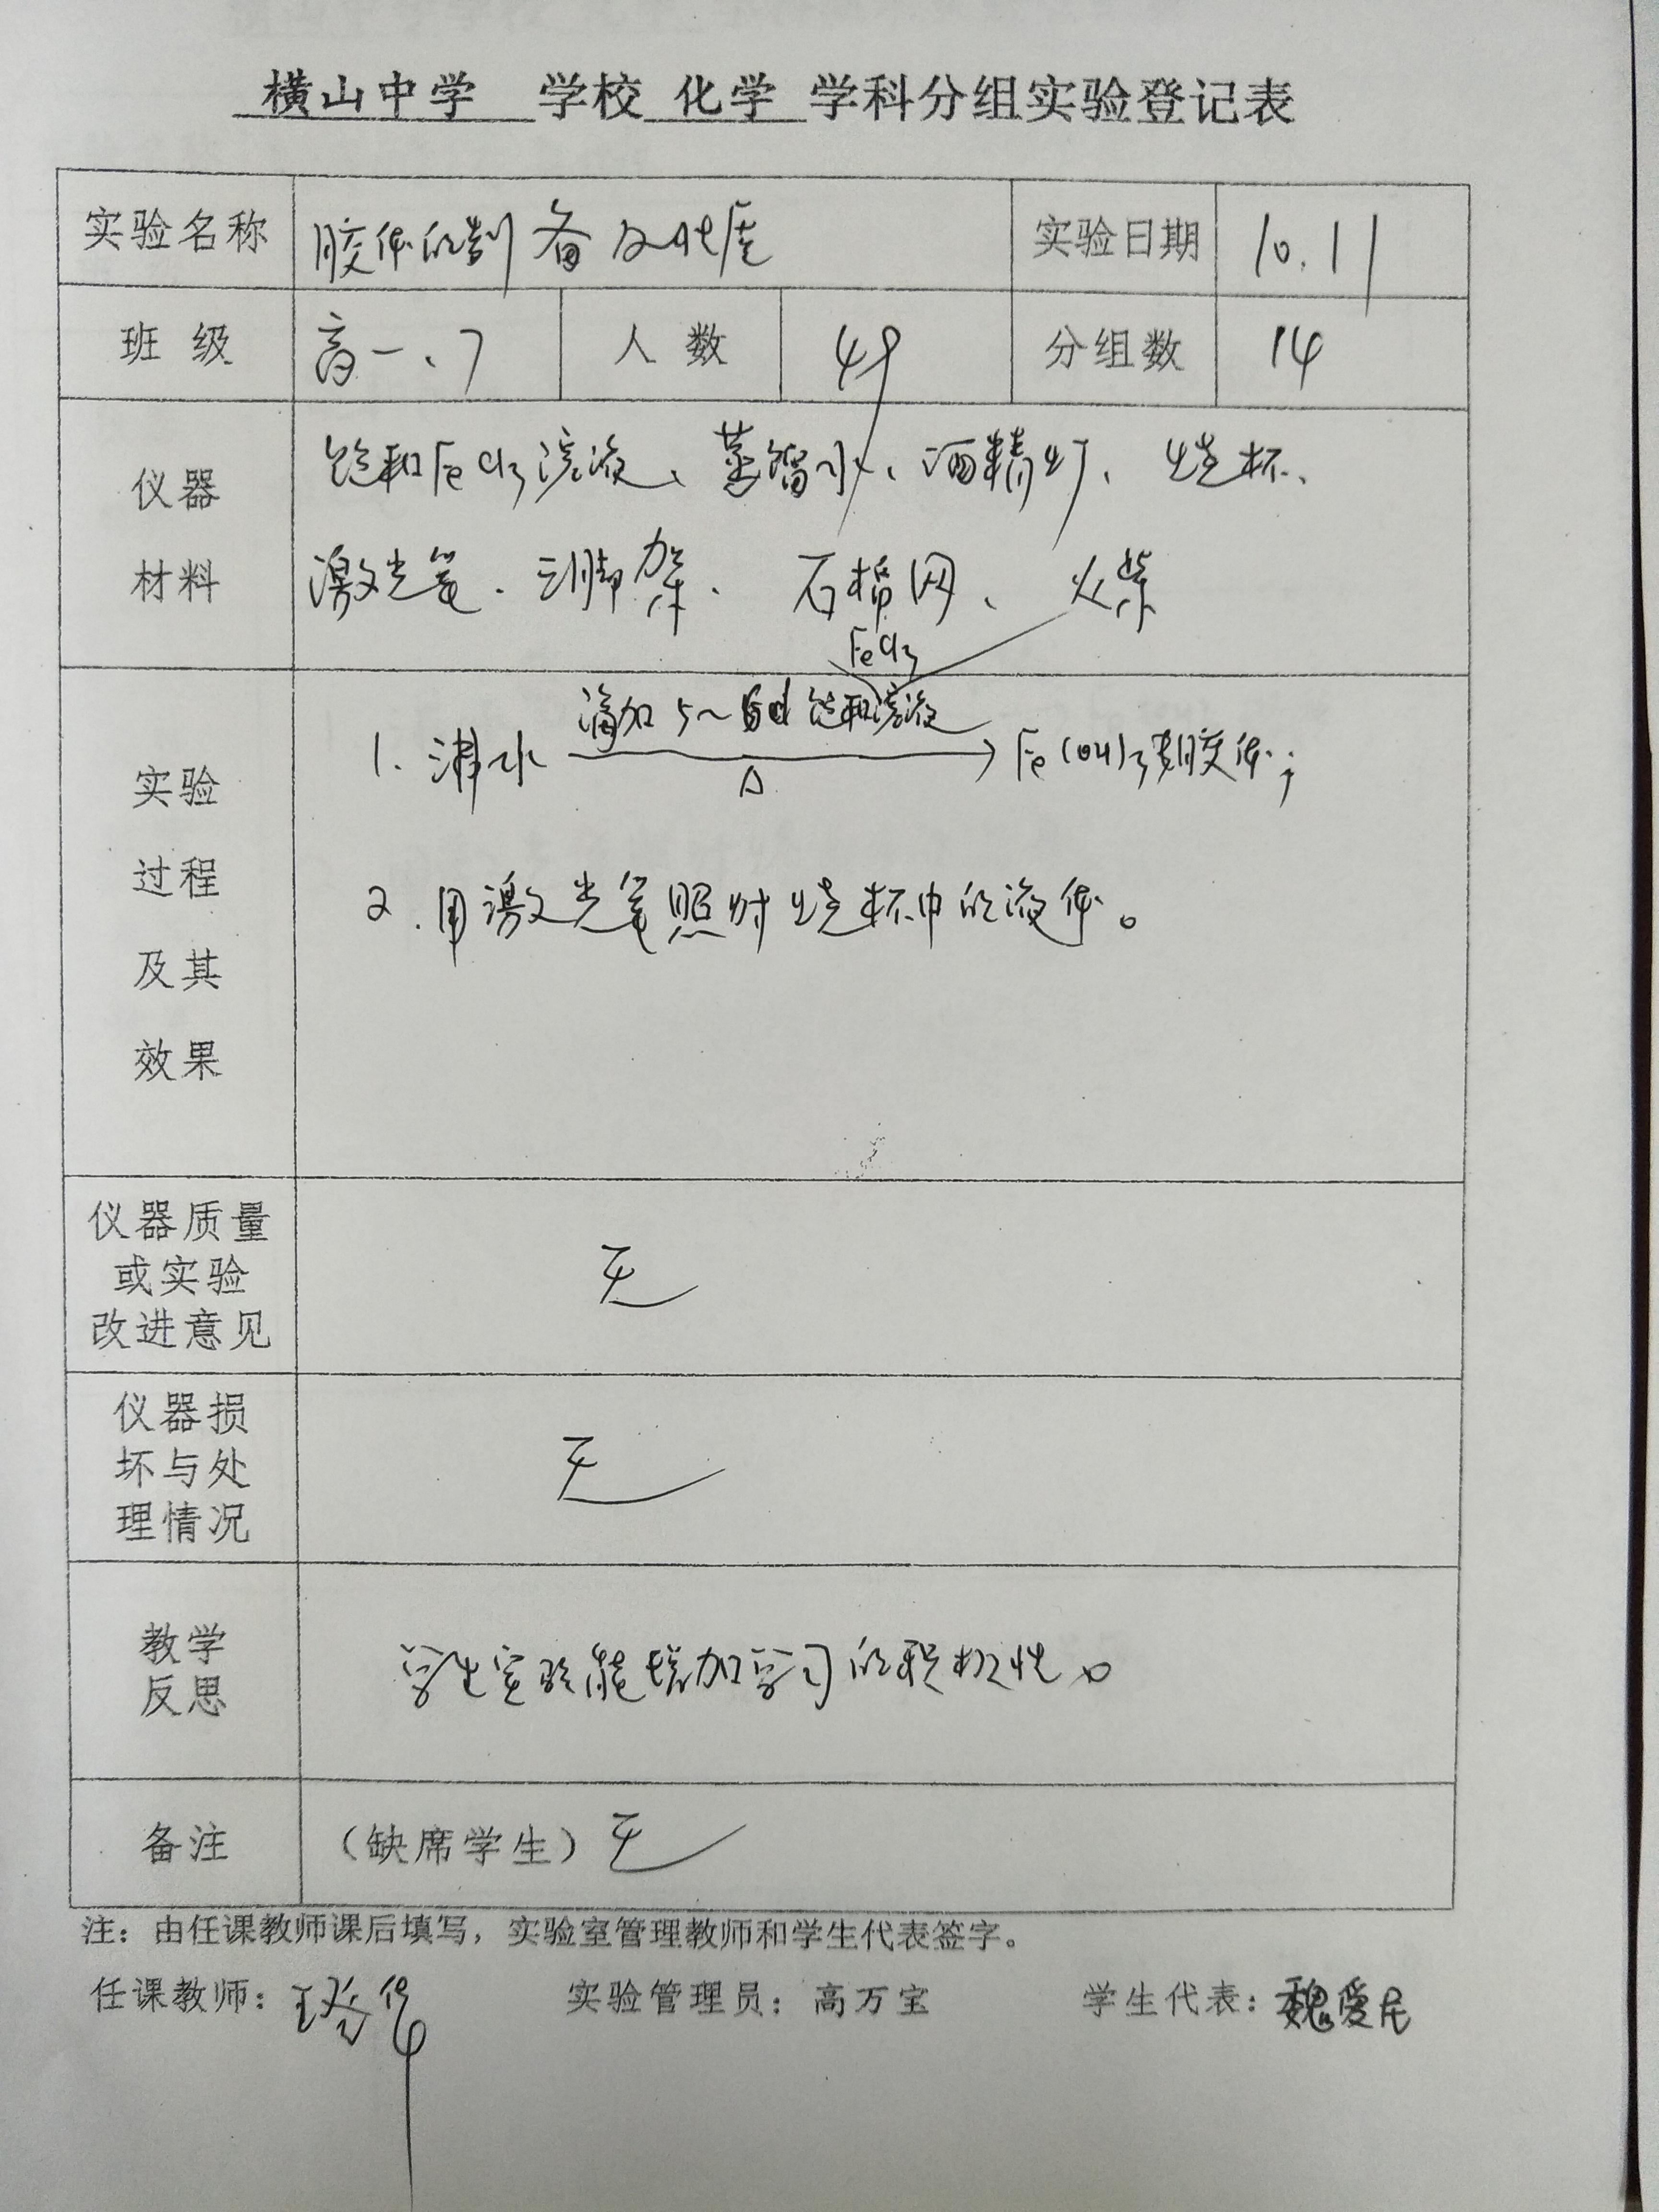 横山中学 学校 化学 学科分组实验登记表
实验名称 胶体的制备及性质 实验日期 10.11
班级 高一.7 人数 49 分组数 14
仪器材料
饱和FeCl3溶液、蒸馏水、酒精灯、烧杯、
激光笔、三脚架、石棉网、火柴
实验过程及其效果
FeCl3
滴加5~6d饱和溶液
1. 沸水 → Fe(OH)3胶体;
△
2. 用激光笔照射烧杯中的液体。
仪器质量
或实验 无
改进意见
仪器损
坏与处 无
理情况
教学
反思
学生实验能增加学习的积极性。
备注 (缺席学生) 无
注:由任课教师课后填写,实验室管理教师和学生代表签字。
任课教师: 实验管理员:高万宝 学生代表:魏爱民